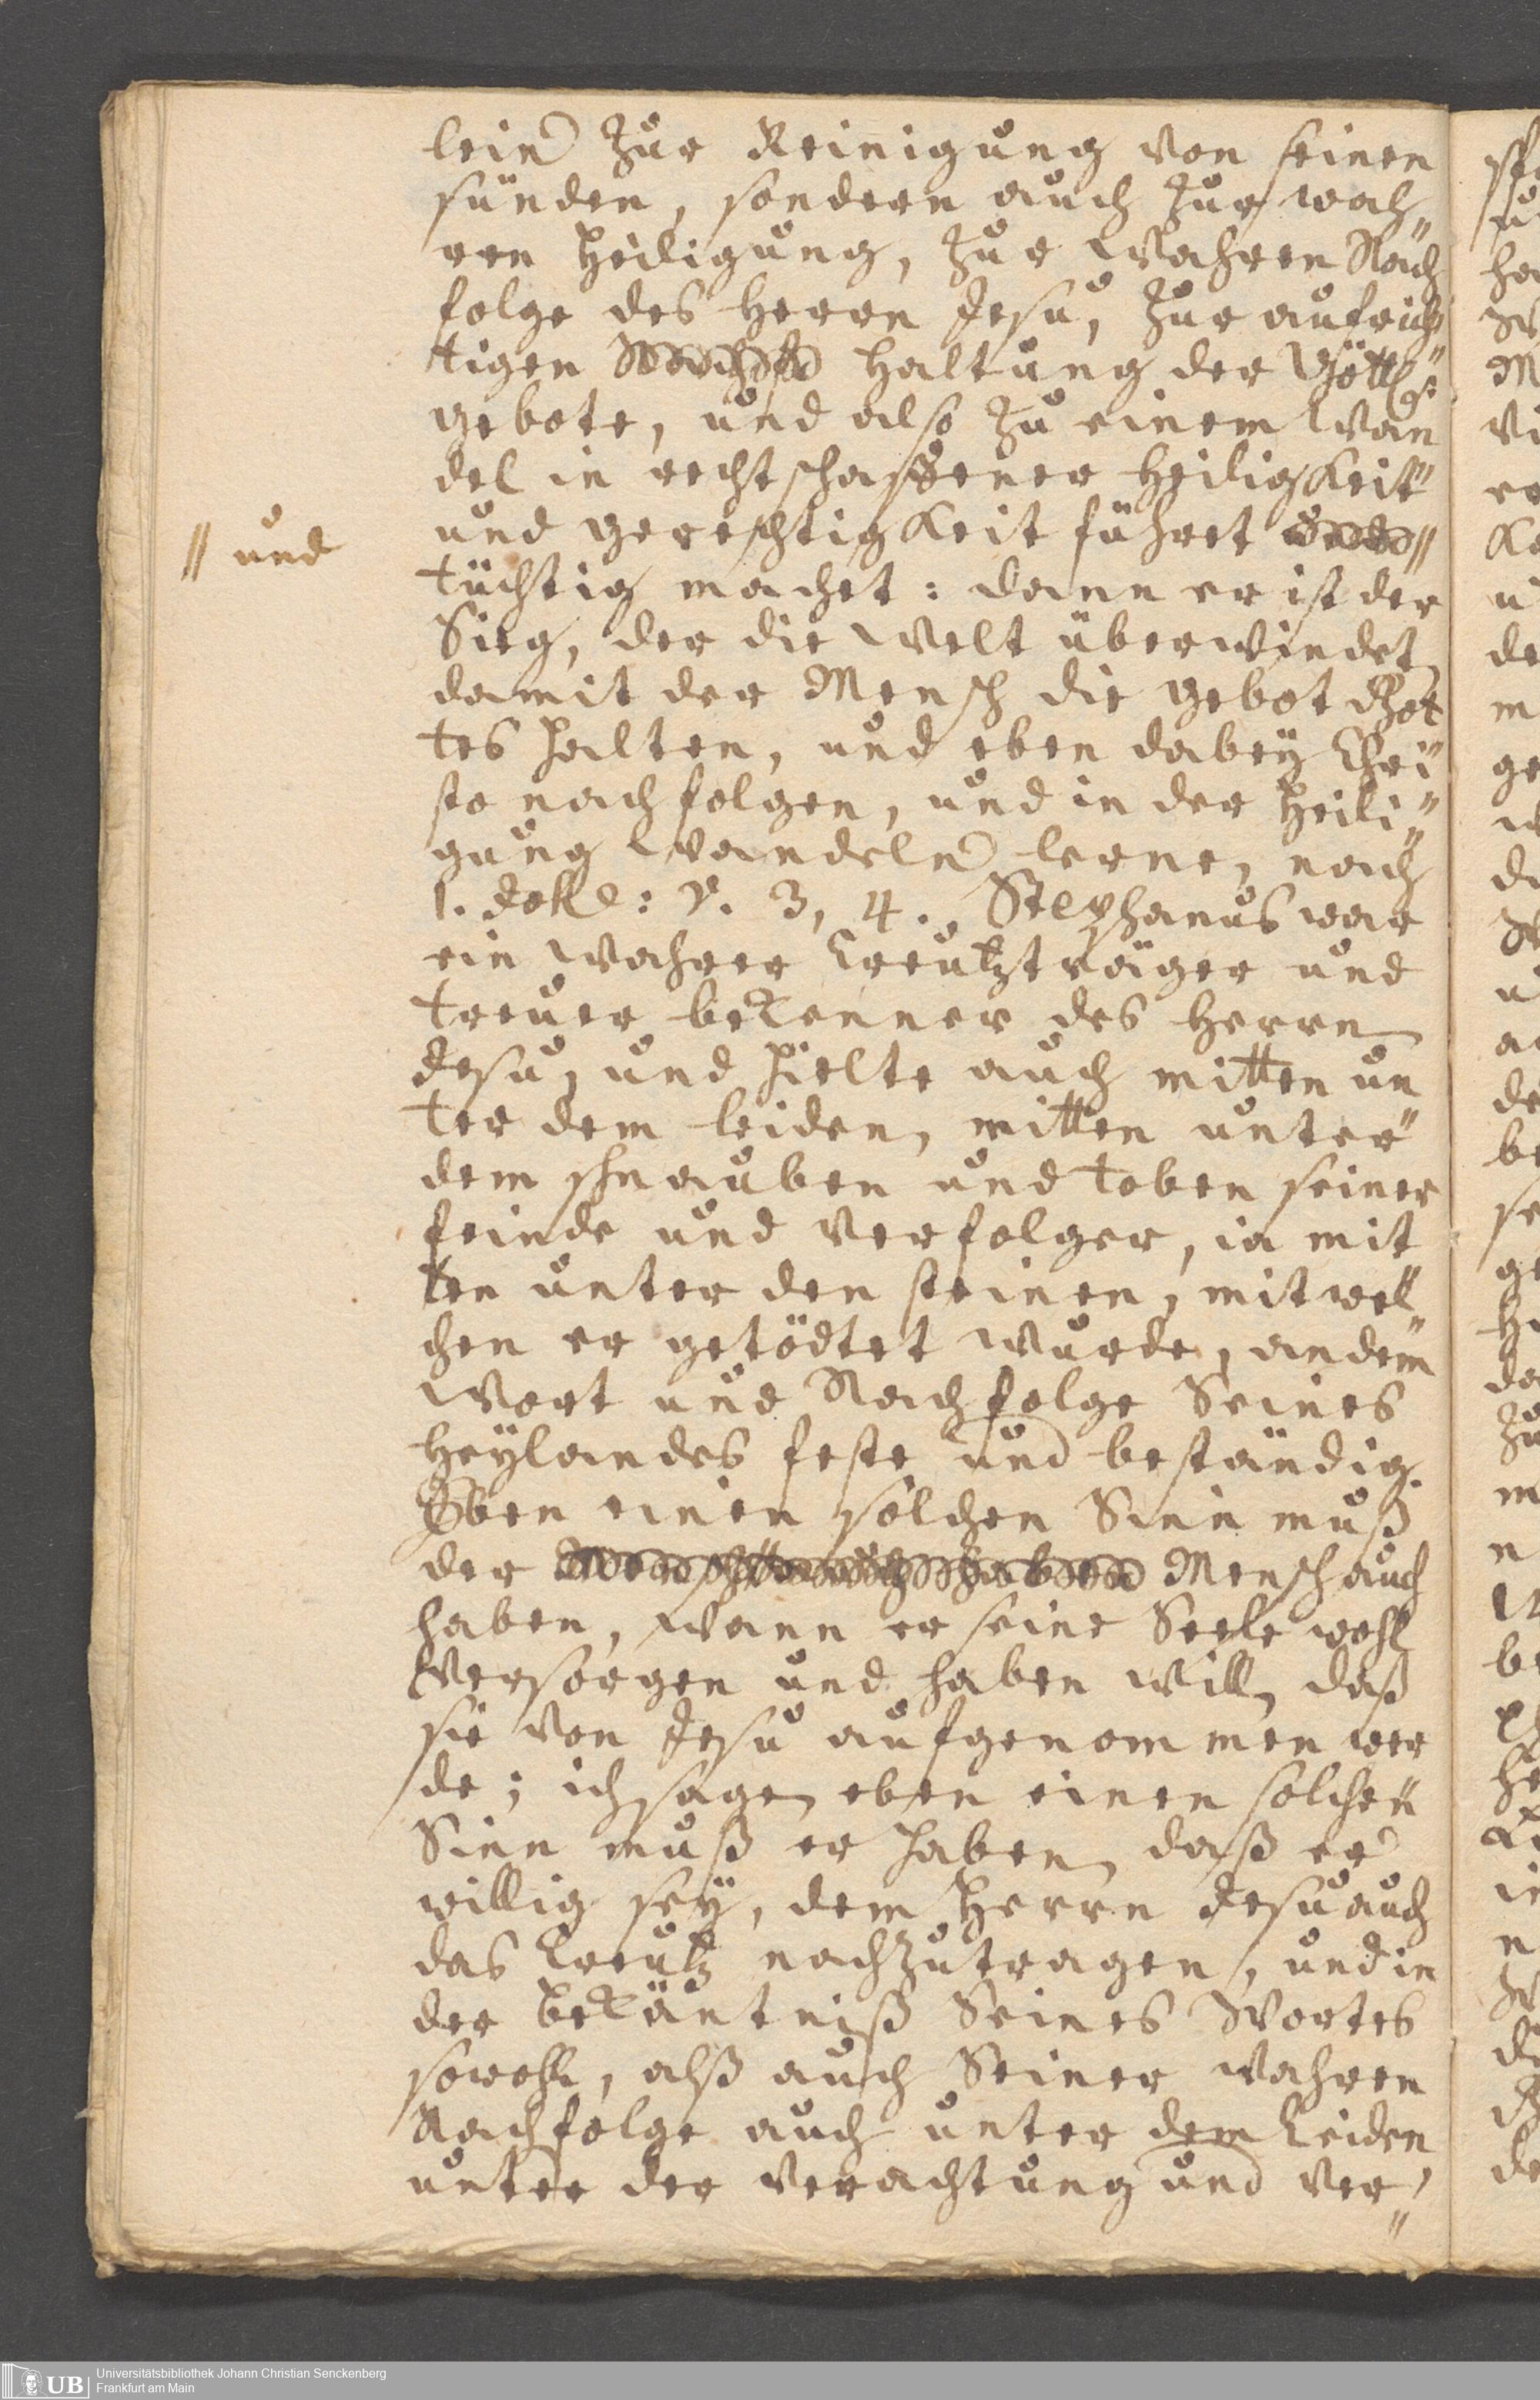 lein zur Reinigung von seinen
sünden, sondern auch zur wah„
ren Heiligung, zur wahren Nach
folge des Herrn Jesu, zur aufrich„
tigen Haltung der Göttl.
gebote, und also zu einem wan
del in rechtschaffener Heiligkeit
und gerechtigkeit führet //
// und
tüchtig machet: dann er ist der
Sieg, der die Welt überwindet
damit der Mensch die gebot Got
tes halten, und eben dabey Chri„
sto nachfolgen, und in der Heili„
gung wandeln lerne, nach
1. Joh: V. 3, 4. Stephanus war
ein wahrer Creutzträger und
treuer bekenner des Herrn
Jesu, und hielte auch mitten un
ter dem leiden, mitten unter
dem schnauben und toben seiner
feinde und verfolger, ia mit
ten unter den steinen, mit wel„
chen er getödtet wurde, an dem
Wort und Nachfolge Seines
Heylandes feste und beständig.
Eben einen solchen Sinn muß
der Mensch auch
haben, wann er seine Seele wohl
versorgen und haben will, daß
sie von Jesu aufgenommen wer
de; ich sage, eben einen solchen
Sinn muß er haben, daß er
willig sey, dem Herrn Jesu auch
das Creutz nachzutragen, und in
der bekäntniß Seines Wortes
sowohl, alß auch Seiner wahren
Nachfolge auch unter dem Leiden,
unter der verachtung und ver„
Universitätsbibliothek Johann Christian Senckenberg
Frankfurt am Main
UB